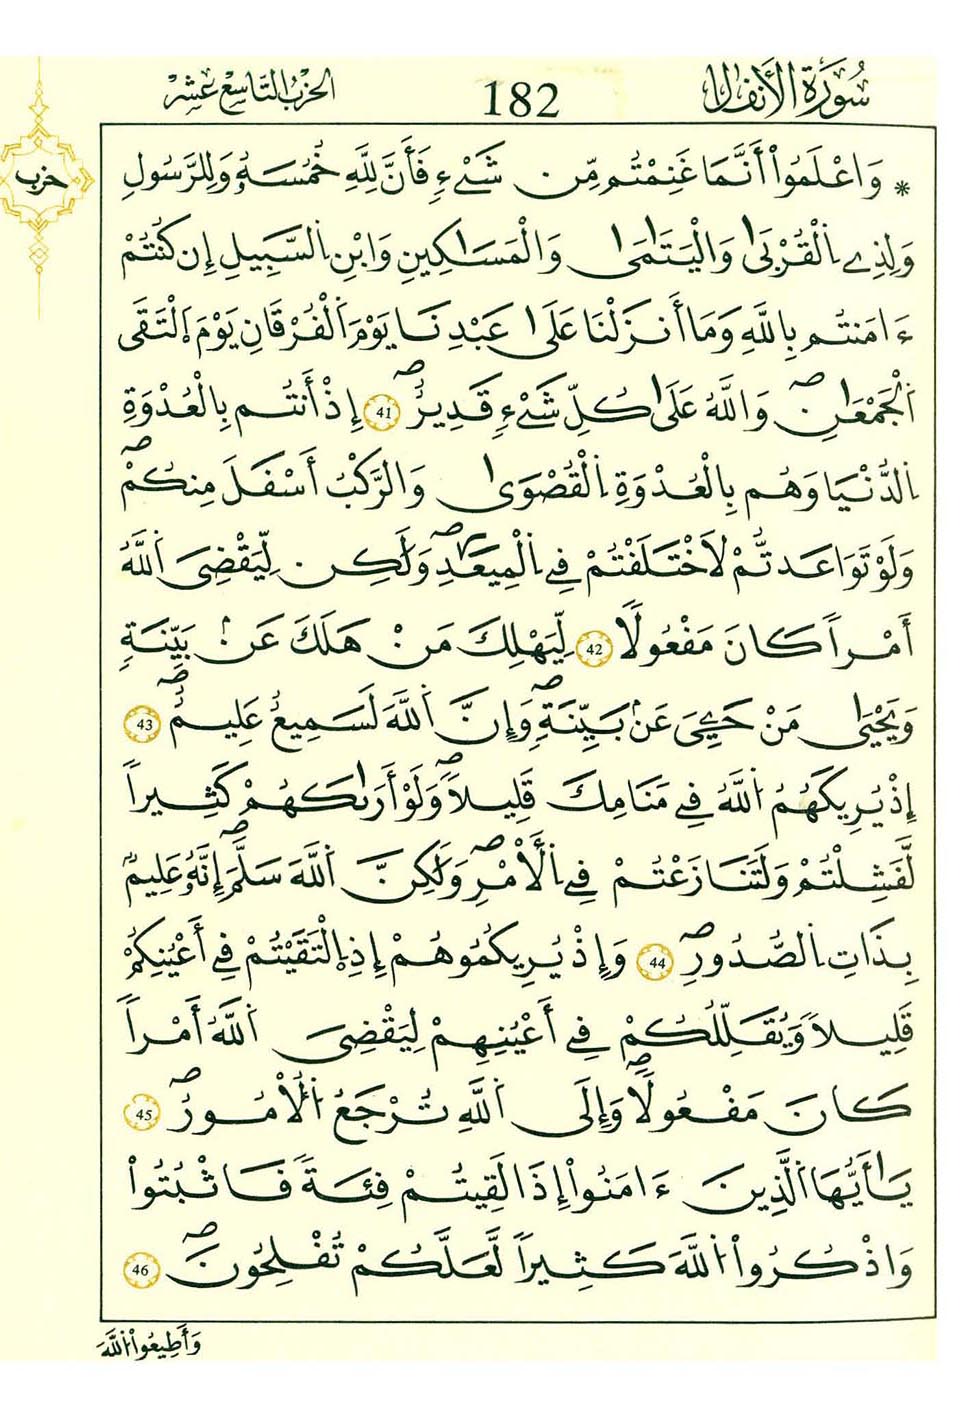 سُورَةُ الأَنفَالِ 182 الحِزْبُ التَّاسِعَ عَشَرَ
حزب
* وَاعْلَمُوٓاْ أَنَّمَا غَنِمْتُم مِّن شَےْءٖ فَأَنَّ لِلَّهِ خُمُسَهُۥ وَلِلرَّسُولِ
وَلِذِے اِ۬لْقُرْبَىٰ وَالْيَتَٰمَىٰ وَالْمَسَٰكِينِ وَابْنِ اِ۬لسَّبِيلِ إِن كُنتُمْ
ءَامَنتُم بِاللَّهِ وَمَآ أَنزَلْنَا عَلَىٰ عَبْدِنَا يَوْمَ اَ۬لْفُرْقَانِ يَوْمَ اَ۪لْتَقَى
اَ۬لْجَمْعَٰنِۖ وَاللَّهُ عَلَىٰ كُلِّ شَےْءٖ قَدِيرٌۖ 41 إِذْ أَنتُم بِالْعُدْوَةِ
اِ۬لدُّنْيَا وَهُم بِالْعُدْوَةِ اِ۬لْقُصْوَىٰ وَالرَّكْبُ أَسْفَلَ مِنكُمْۖ
وَلَوْ تَوَاعَدتُّمْ لَاخْتَلَفْتُمْ فِے اِ۬لْمِيعَٰدِۖ وَلَٰكِن لِّيَقْضِىَ اَ۬للَّهُ
أَمْراً كَانَ مَفْعُولًا 42 لِّيَهْلِكَ مَنْ هَلَكَ عَنۢ بَيِّنَةٖ
وَيَحْيَىٰ مَنْ حَيِىَ عَنۢ بَيِّنَةٖۖ وَإِنَّ اَ۬للَّهَ لَسَمِيعٌ عَلِيمٌۖ 43
إِذْ يُرِيكَهُمُ اُ۬للَّهُ فِے مَنَامِكَ قَلِيلاًۖ وَلَوْ أَرَىٰكَهُمْ كَثِيراً
لَّفَشِلْتُمْ وَلَتَنَٰزَعْتُمْ فِے اِ۬لْأَمْرِۖ وَلَٰكِنَّ اَ۬للَّهَ سَلَّمَۖ إِنَّهُۥ عَلِيمٌۢ
بِذَاتِ اِ۬لصُّدُورِۖ 44 وَإِذْ يُرِيكُمُوهُمْ إِذِ اِ۪لْتَقَيْتُمْ فِےٓ أَعْيُنِكُمْ
قَلِيلاً وَيُقَلِّلُكُمْ فِےٓ أَعْيُنِهِمْ لِيَقْضِىَ اَ۬للَّهُ أَمْراً
كَانَ مَفْعُولاًۖ وَإِلَى اَ۬للَّهِ تُرْجَعُ اُ۬لْأُمُورُۖ 45
يَٰٓأَيُّهَا اَ۬لَّذِينَ ءَامَنُوٓاْ إِذَا لَقِيتُمْ فِئَةً فَاثْبُتُواْ
وَاذْكُرُواْ اُ۬للَّهَ كَثِيراً لَّعَلَّكُمْ تُفْلِحُونَۖ 46
وَأَطِيعُواْ اُ۬للَّهَ